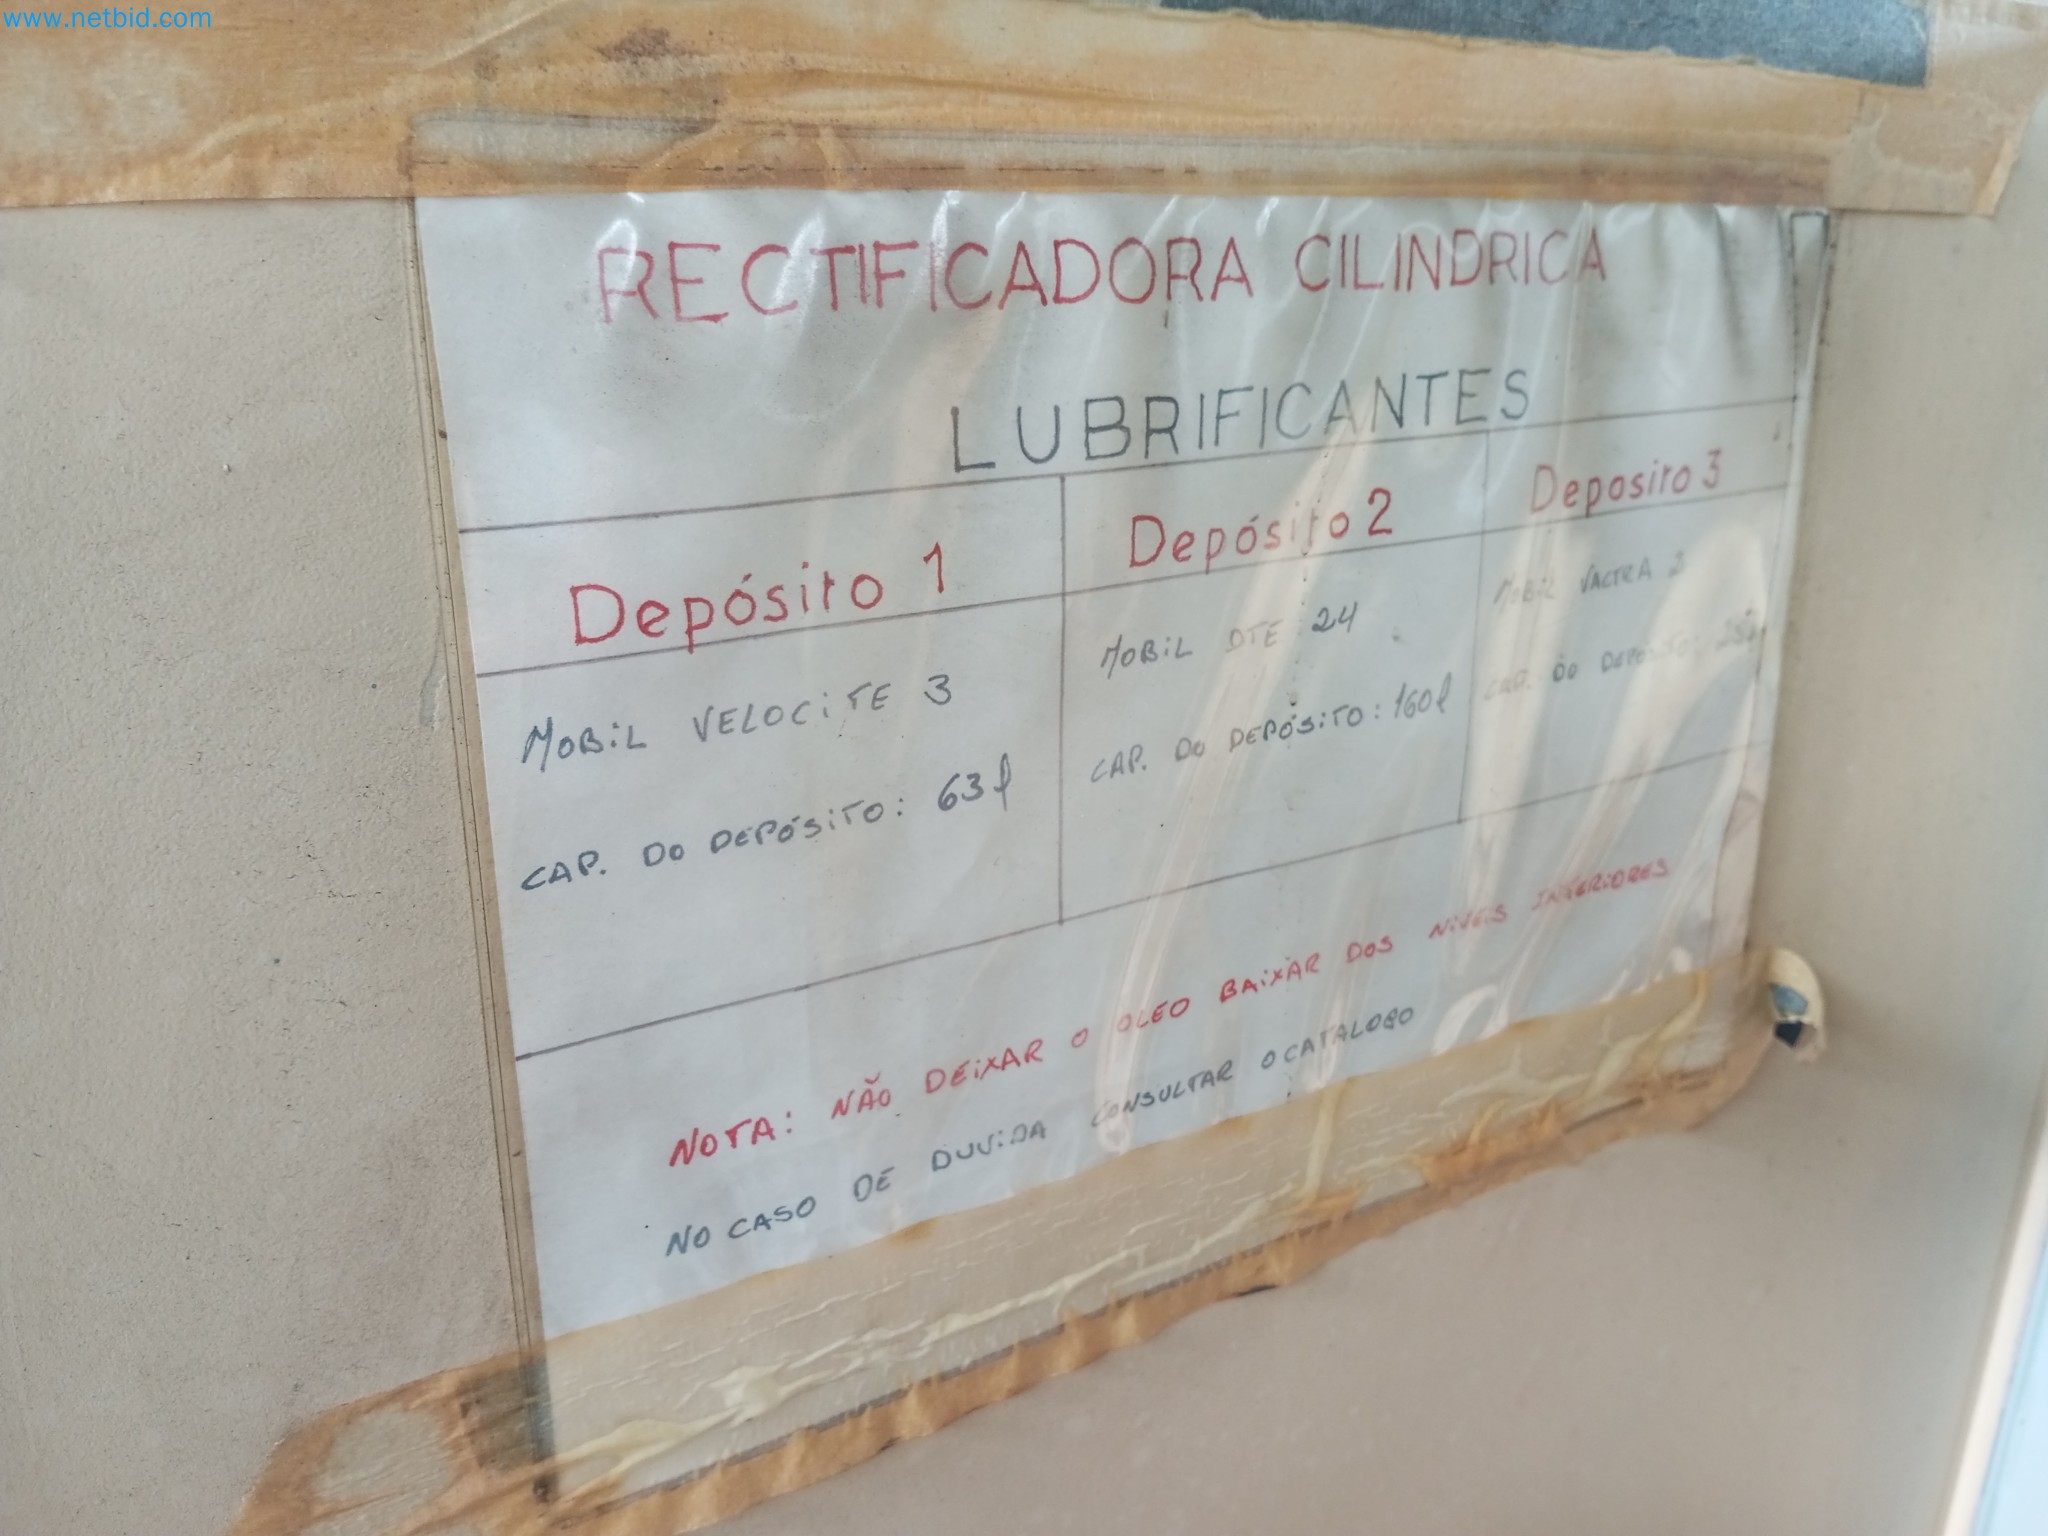 www.netbid.com
RECTIFICADORA CILINDRICA
LUBRIFICANTES
Depósito 1
Depósito 2
Deposito 3
MOBIL VELOCITE 3
CAP. DO DEPÓSITO: 63l
MOBIL DTE 24
CAP. DO DEPÓSITO: 160l
MOBIL VACTRA 2
CAP. DO DEPÓSITO:
NOTA: NÃO DEIXAR O OLEO BAIXAR DOS NIVEIS INFERIORES
NO CASO DE DUVIDA CONSULTAR O CATALOGO